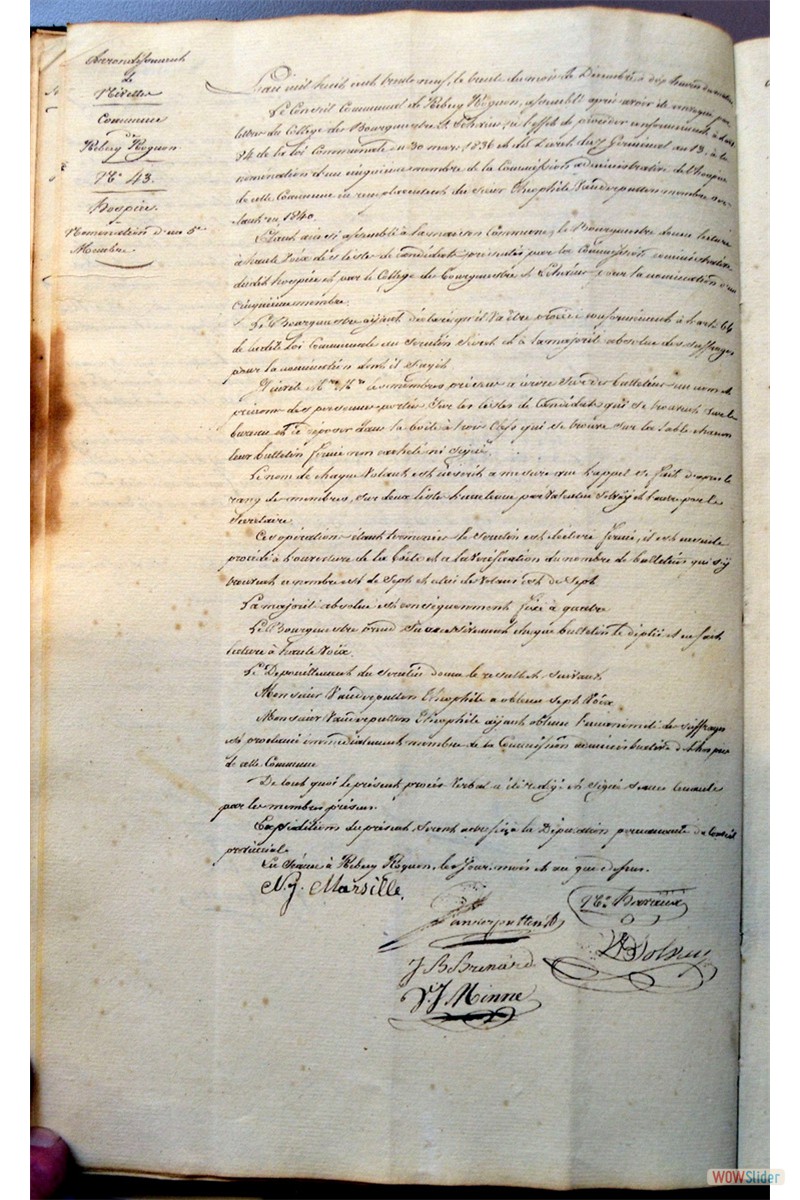 Arrondissement
de
Nivelles
Commune
de
Rebecq Rognon
N° 43.
Hospice.
Nomination d'un 5e
Membre.
L'an mil huit cent trente neuf, le trente du mois de Décembre, dix heures du matin
Le Conseil Communal de Rebecq Rognon, assemblé après avoir été convoqué par
lettre du Collège des Bourgmestre et Echevins, à l'effet de procéder conformément à l'art
84 de la loi Communale du 30 mars 1836 et du Décret du 7 Germinal an 13, à la
nomination d'un cinquième membre de la Commission administrative de l'hospice
de cette Commune en remplacement du sieur Théophile Vanderputten membre sor-
tant en 1840.
Etant ainsi assemblé à la maison Commune, le Bourgmestre donne lecture
à haute voix des listes de candidats présentés par la Commission administrative
dudit hospice et par le Collège des Bourgmestre et Echevins pour la nomination d'un
cinquième membre.
Le Bourgmestre ayant déclaré qu'il va être procédé conformément à l'art. 66
de ladite Loi Communale au scrutin secret et à la majorité absolue des suffrages
pour la nomination dont il s'agit
Invite M.rs les membres présens à écrire sur des bulletins un nom et
prénom des personnes portées sur les listes de Candidats qui se trouvent sur le
bureau et de déposer dans la boîte à trois clefs qui se trouve sur la table chacun
leur bulletin fermé non cacheté ni signé.
Le nom de chaque Votant est inscrit à mesure que l'appel se fait d'après le
rang des membres, sur deux listes l'une tenue par et l'autre par le
Secrétaire.
Ces opérations étant terminées le scrutin est déclaré fermé, il est ensuite
procédé à l'ouverture de la boîte et à la vérification du nombre de bulletins qui s'y
trouvent ce nombre est de Sept et celui des Votans est de Sept
La majorité absolue est conséquemment fixée à quatre
Le Bourgmestre prend successivement chaque bulletin le déplie et en fait
lecture à haute voix.
Le Dépouillement du scrutin donne le résultat suivant
Monsieur Vanderputten Théophile a obtenu sept voix
Monsieur Vanderputten Théophile ayant obtenu l'unanimité des suffrages
est proclamé immédiatement membre de la Commission administrative de l'hospice
de cette Commune
De tout quoi le présent procès verbal a été rédigé et signé séance tenante
par les membres présens.
Expéditions du présent seront adressées à la Députation permanente du Conseil
provincial.
En Séance à Rebecq Rognon, les jour, mois et an que dessus.
N. J. Marsille.
Vanderputten
J B Brenard
V J Minne
WOWSlider